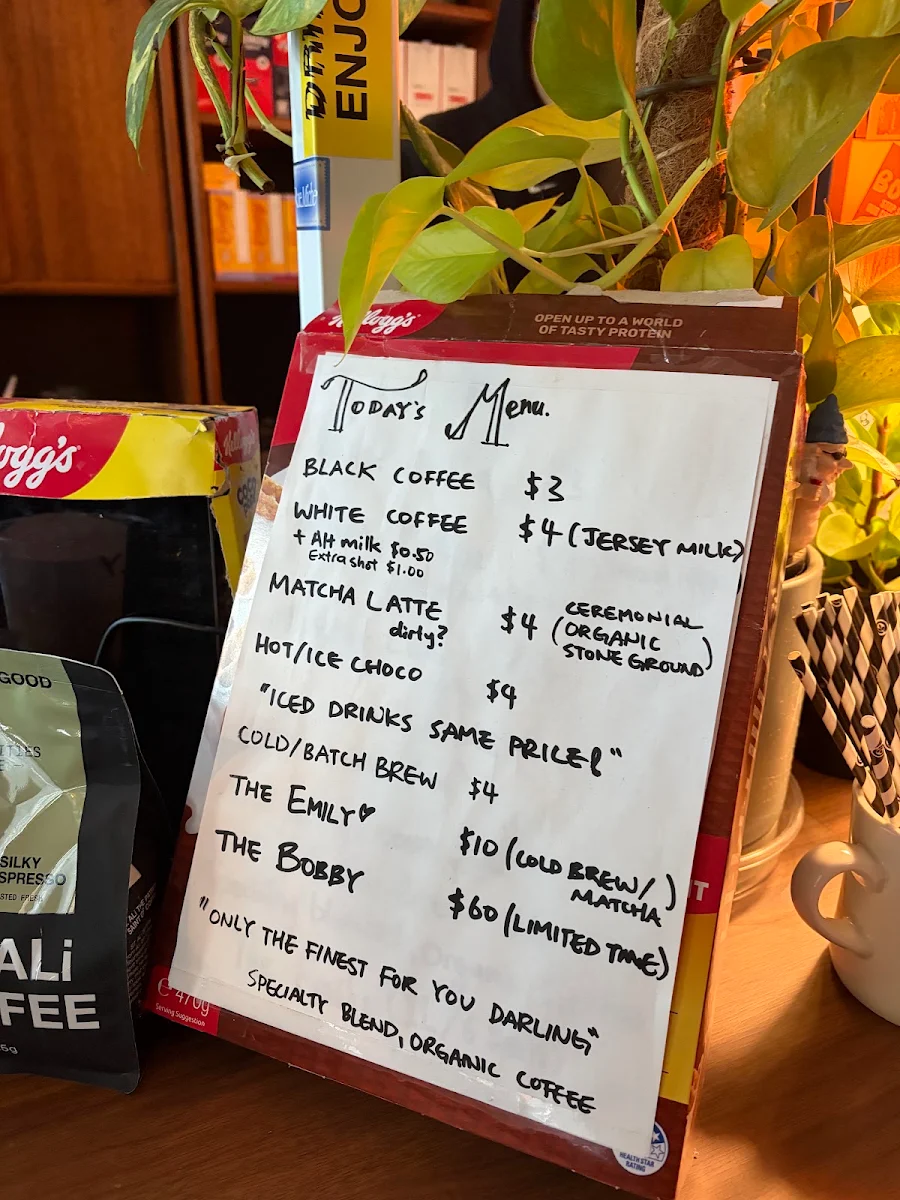 ENJO
Kellogg's
OPEN UP TO A WORLD
OF TASTY PROTEIN
TODAY'S MENU.
BLACK COFFEE $3
WHITE COFFEE $4 (JERSEY MILK)
+ Alt milk $0.50
Extra shot $1.00
MATCHA LATTE $4 (CEREMONIAL
ORGANIC
STONE GROUND)
dirty?
HOT/ICE CHOCO $4
"ICED DRINKS SAME PRICE!"
COLD/BATCH BREW $4
THE EMILY♡ $10 (COLD BREW/
MATCHA)
THE BOBBY $60 (LIMITED TIME)
"ONLY THE FINEST FOR YOU DARLING,"
SPECIALTY BLEND, ORGANIC COFFEE
e 470g
Serving Suggestion
HEALTH STAR
RATING
ogg's
Kellogg's
GOOD
ITIES
SILKY
SPRESSO
STED FRESH
ALi
FEE
5g